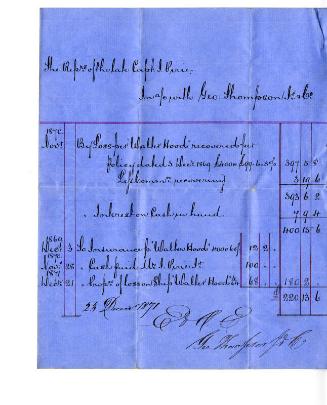 The Repres of the late Capt J. Pirie.
In a/c with Geo. Thompson Jr & Co
1870
Novr By Loss per Walter Hood recovered per
Policy dated 5 Decr 1869 £400 @ 99.6.5% 397 5 8
Less commn recovering 3 19 6
393 6 2
" Interest on Cash in hand 7 9 4
400 15 6
1869
Decr 3 To Insurance pr Walter Hood 400 @ 12 2 -
1870
Novr 28 " Cash paid 100 - -
1871
Decr 21 " of loss on Ship Walter Hood 68 180 2 -
£ 220 13 6
23 Decr 1871
E & O E
Geo Thompson Jr & Co